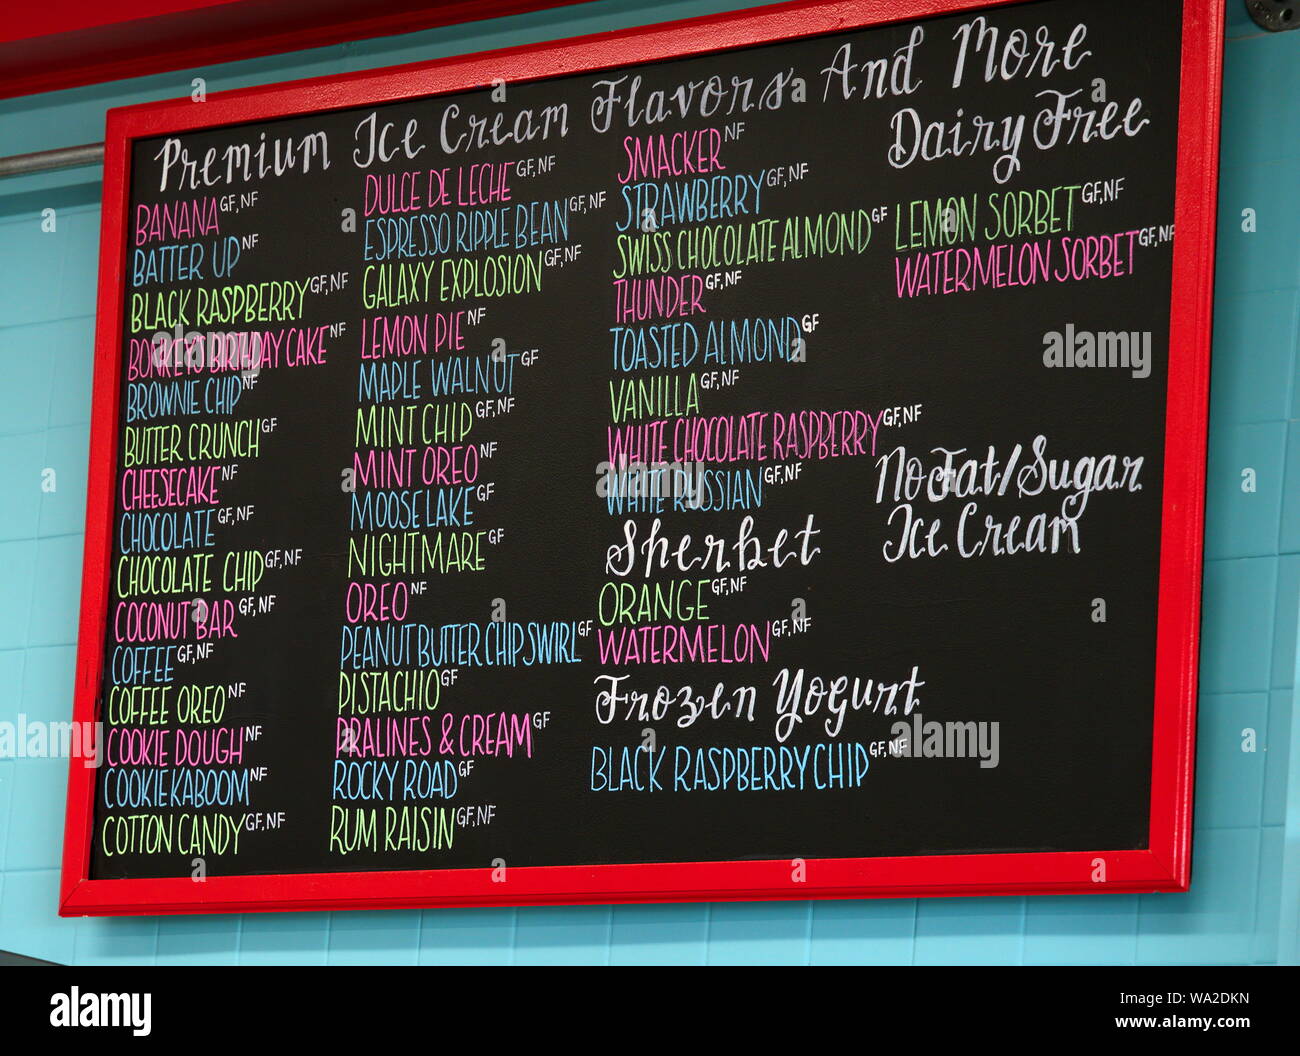 Premium Ice Cream Flavors And More
BANANA GF, NF
BATTER UP NF
BLACK RASPBERRY GF, NF
BONKEY'S BIRTHDAY CAKE NF
BROWNIE CHIP NF
BUTTER CRUNCH GF
CHEESECAKE NF
CHOCOLATE GF, NF
CHOCOLATE CHIP GF, NF
COCONUT BAR GF, NF
COFFEE GF, NF
COFFEE OREO NF
COOKIE DOUGH NF
COOKIE KABOOM NF
COTTON CANDY GF, NF
DULCE DE LECHE GF, NF
ESPRESSO RIPPLE BEAN GF, NF
GALAXY EXPLOSION GF, NF
LEMON PIE NF
MAPLE WALNUT GF
MINT CHIP GF, NF
MINT OREO NF
MOOSE LAKE GF
NIGHTMARE GF
OREO NF
PEANUT BUTTER CHIP SWIRL GF
PISTACHIO GF
PRALINES & CREAM GF
ROCKY ROAD GF
RUM RAISIN GF, NF
SMACKER NF
STRAWBERRY GF, NF
SWISS CHOCOLATE ALMOND GF
THUNDER GF, NF
TOASTED ALMOND GF
VANILLA GF, NF
WHITE CHOCOLATE RASPBERRY GF, NF
WHITE RUSSIAN GF, NF
Sherbet
ORANGE GF, NF
WATERMELON GF, NF
Frozen Yogurt
BLACK RASPBERRY CHIP GF, NF
Dairy Free
LEMON SORBET GF, NF
WATERMELON SORBET GF, NF
No Fat/Sugar
Ice Cream
alamy
Image ID: WA2DKN
www.alamy.com